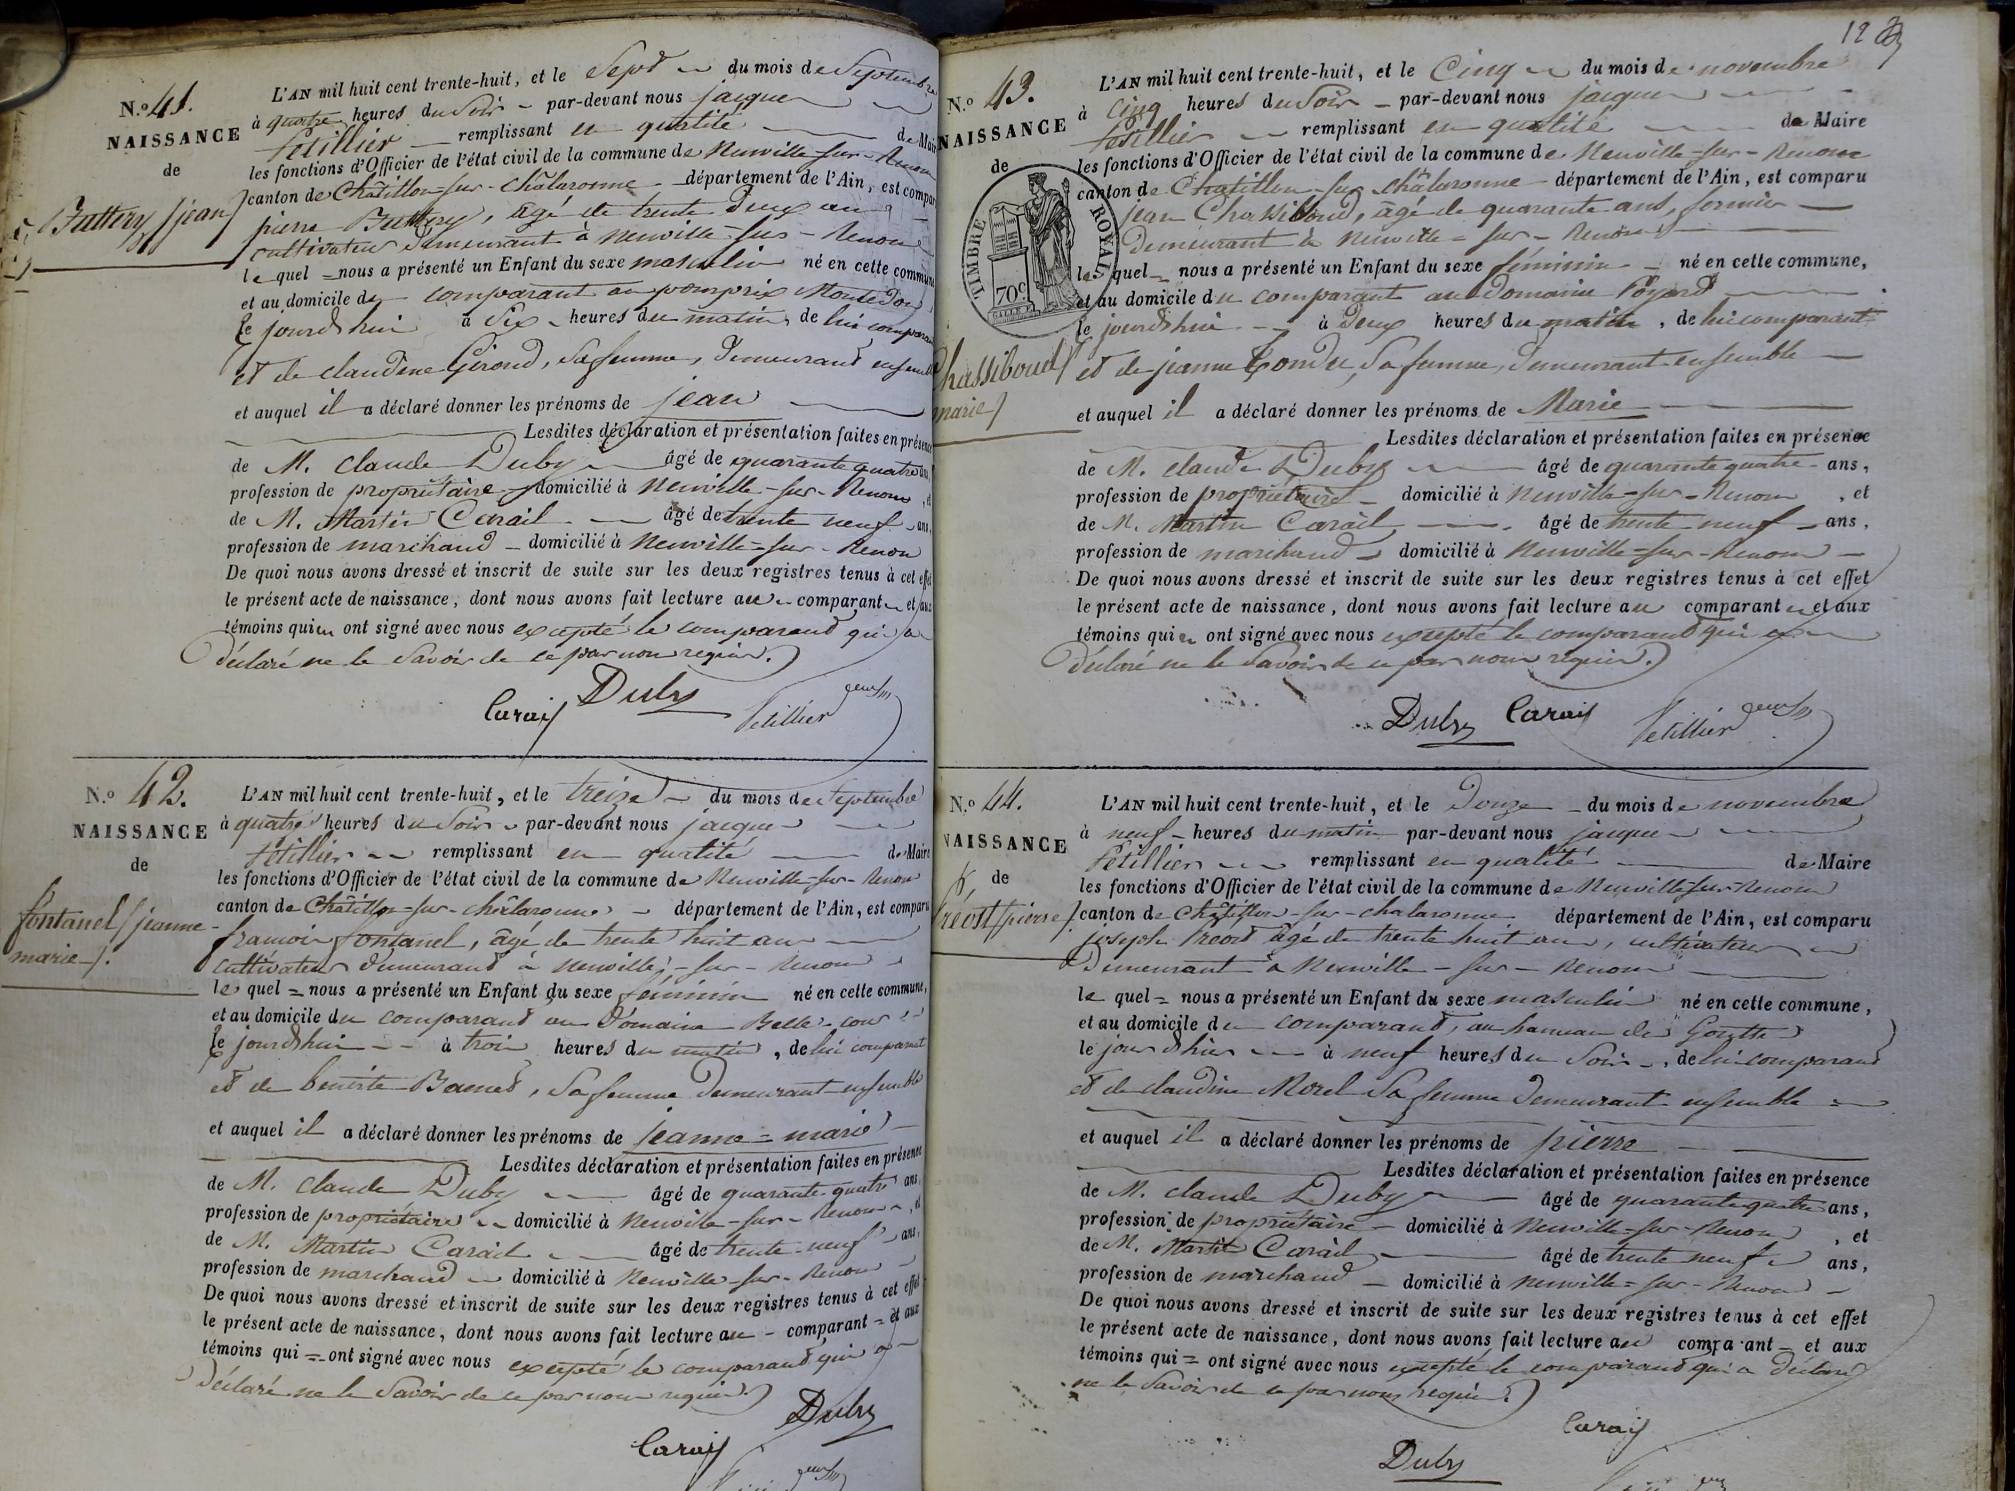 N.o 41.
NAISSANCE
de
Buttery (jean)
L'AN mil huit cent trente-huit, et le Sept du mois de Septembre
à quatre heures du Soir par-devant nous jacques
Pétillier remplissant en qualité de Maire
les fonctions d'Officier de l'état civil de la commune de Neuville-sur-Renom
canton de Châtillon-sur-châlaronne département de l'Ain, est comparu
pierre Buttery, âgé de trente deux ans
cultivateur demeurant à Neuville-sur-Renom
le quel nous a présenté un Enfant du sexe masculin né en cette commune
et au domicile du comparant au
le jourd'hui à Six heures du matin, de lui comparant
et de claudine Girond, Sa femme, demeurant ensemble
et auquel il a déclaré donner les prénoms de jean
Lesdites déclaration et présentation faites en présence
de M. claude Duby âgé de quarante quatre ans,
profession de propriétaire domicilié à Neuville-sur-Renom, et
de M. Martin Carail âgé de trente neuf ans,
profession de marchand domicilié à Neuville-sur-Renom
De quoi nous avons dressé et inscrit de suite sur les deux registres tenus à cet effet
le présent acte de naissance, dont nous avons fait lecture au comparant et aux
témoins qui ont signé avec nous excepté le comparant qui a
déclaré ne le Savoir de ce par nous requis.
Carail Duby Pétillier
N.o 42.
NAISSANCE
de
fontanel (jeanne-
marie).
L'AN mil huit cent trente-huit, et le treize du mois de Septembre
à quatre heures du Soir par-devant nous jacques
Pétillier remplissant en qualité de Maire
les fonctions d'Officier de l'état civil de la commune de Neuville-sur-Renom
canton de Châtillon-sur-châlaronne département de l'Ain, est comparu
francois fontanel, âgé de trente huit ans
cultivateur demeurant à Neuville-sur-Renom
le quel nous a présenté un Enfant du sexe féminin né en cette commune,
et au domicile du comparant au Domaine Belle-cour
le jourd'hui à trois heures du matin, de lui comparant
et de benoite Bamet, Sa femme demeurant ensemble
et auquel il a déclaré donner les prénoms de jeanne-marie
Lesdites déclaration et présentation faites en présence
de M. claude Duby âgé de quarante-quatre ans,
profession de propriétaire domicilié à Neuville-sur-Renom, et
de M. Martin Carail âgé de trente neuf ans,
profession de marchand domicilié à Neuville-sur-Renom
De quoi nous avons dressé et inscrit de suite sur les deux registres tenus à cet effet
le présent acte de naissance, dont nous avons fait lecture au comparant et aux
témoins qui ont signé avec nous excepté le comparant qui a
déclaré ne le Savoir de ce par nous requis.
Duby
Carail
123
N.o 43.
NAISSANCE
de
TIMBRE ROYAL
70c
Chassiboud
marie)
L'AN mil huit cent trente-huit, et le Cinq du mois de novembre
à Cinq heures du Soir par-devant nous jacques
Pétillier remplissant en qualité de Maire
les fonctions d'Officier de l'état civil de la commune de Neuville-sur-Renom
canton de Châtillon-sur-châlaronne département de l'Ain, est comparu
jean Chassiboud, âgé de quarante ans, fermier
demeurant à Neuville-sur-Renom
le quel nous a présenté un Enfant du sexe féminin né en cette commune,
et au domicile du comparant au Domaine Poyard
le jourd'hui à Deux heures du matin, de lui comparant
et de jeanne Condu, Sa femme, demeurant ensemble
et auquel il a déclaré donner les prénoms de Marie
Lesdites déclaration et présentation faites en présence
de M. claude Duby âgé de quarante quatre ans,
profession de propriétaire domicilié à Neuville-sur-Renom, et
de M. Martin Carail âgé de trente neuf ans,
profession de marchand domicilié à Neuville-sur-Renom
De quoi nous avons dressé et inscrit de suite sur les deux registres tenus à cet effet
le présent acte de naissance, dont nous avons fait lecture au comparant et aux
témoins qui ont signé avec nous excepté le comparant qui a
déclaré ne le Savoir de ce par nous requis.
Duby Carail Pétillier
N.o 44.
NAISSANCE
de
Tréost (pierre).
L'AN mil huit cent trente-huit, et le Douze du mois de novembre
à neuf heures du matin par-devant nous jacques
Pétillier remplissant en qualité de Maire
les fonctions d'Officier de l'état civil de la commune de Neuville sur Renom
canton de Châtillon-sur-chalaronne département de l'Ain, est comparu
joseph Tréost âgé de trente huit ans, cultivateur
demeurant à Neuville-sur-Renom
le quel nous a présenté un Enfant du sexe masculin né en cette commune,
et au domicile du comparant, au hameau de Goutte
le jour d'hier à neuf heures du Soir, de lui comparant
et de claudine Morel Sa femme demeurant ensemble
et auquel il a déclaré donner les prénoms de pierre
Lesdites déclaration et présentation faites en présence
de M. claude Duby âgé de quarante quatre ans,
profession de propriétaire domicilié à Neuville-sur-Renom, et
de M. Martin Carail âgé de trente neuf ans,
profession de marchand domicilié à Neuville-sur-Renom
De quoi nous avons dressé et inscrit de suite sur les deux registres tenus à cet effet
le présent acte de naissance, dont nous avons fait lecture au comparant et aux
témoins qui ont signé avec nous excepté le comparant qui a déclaré
ne le Savoir de ce par nous requis.
Carail
Duby